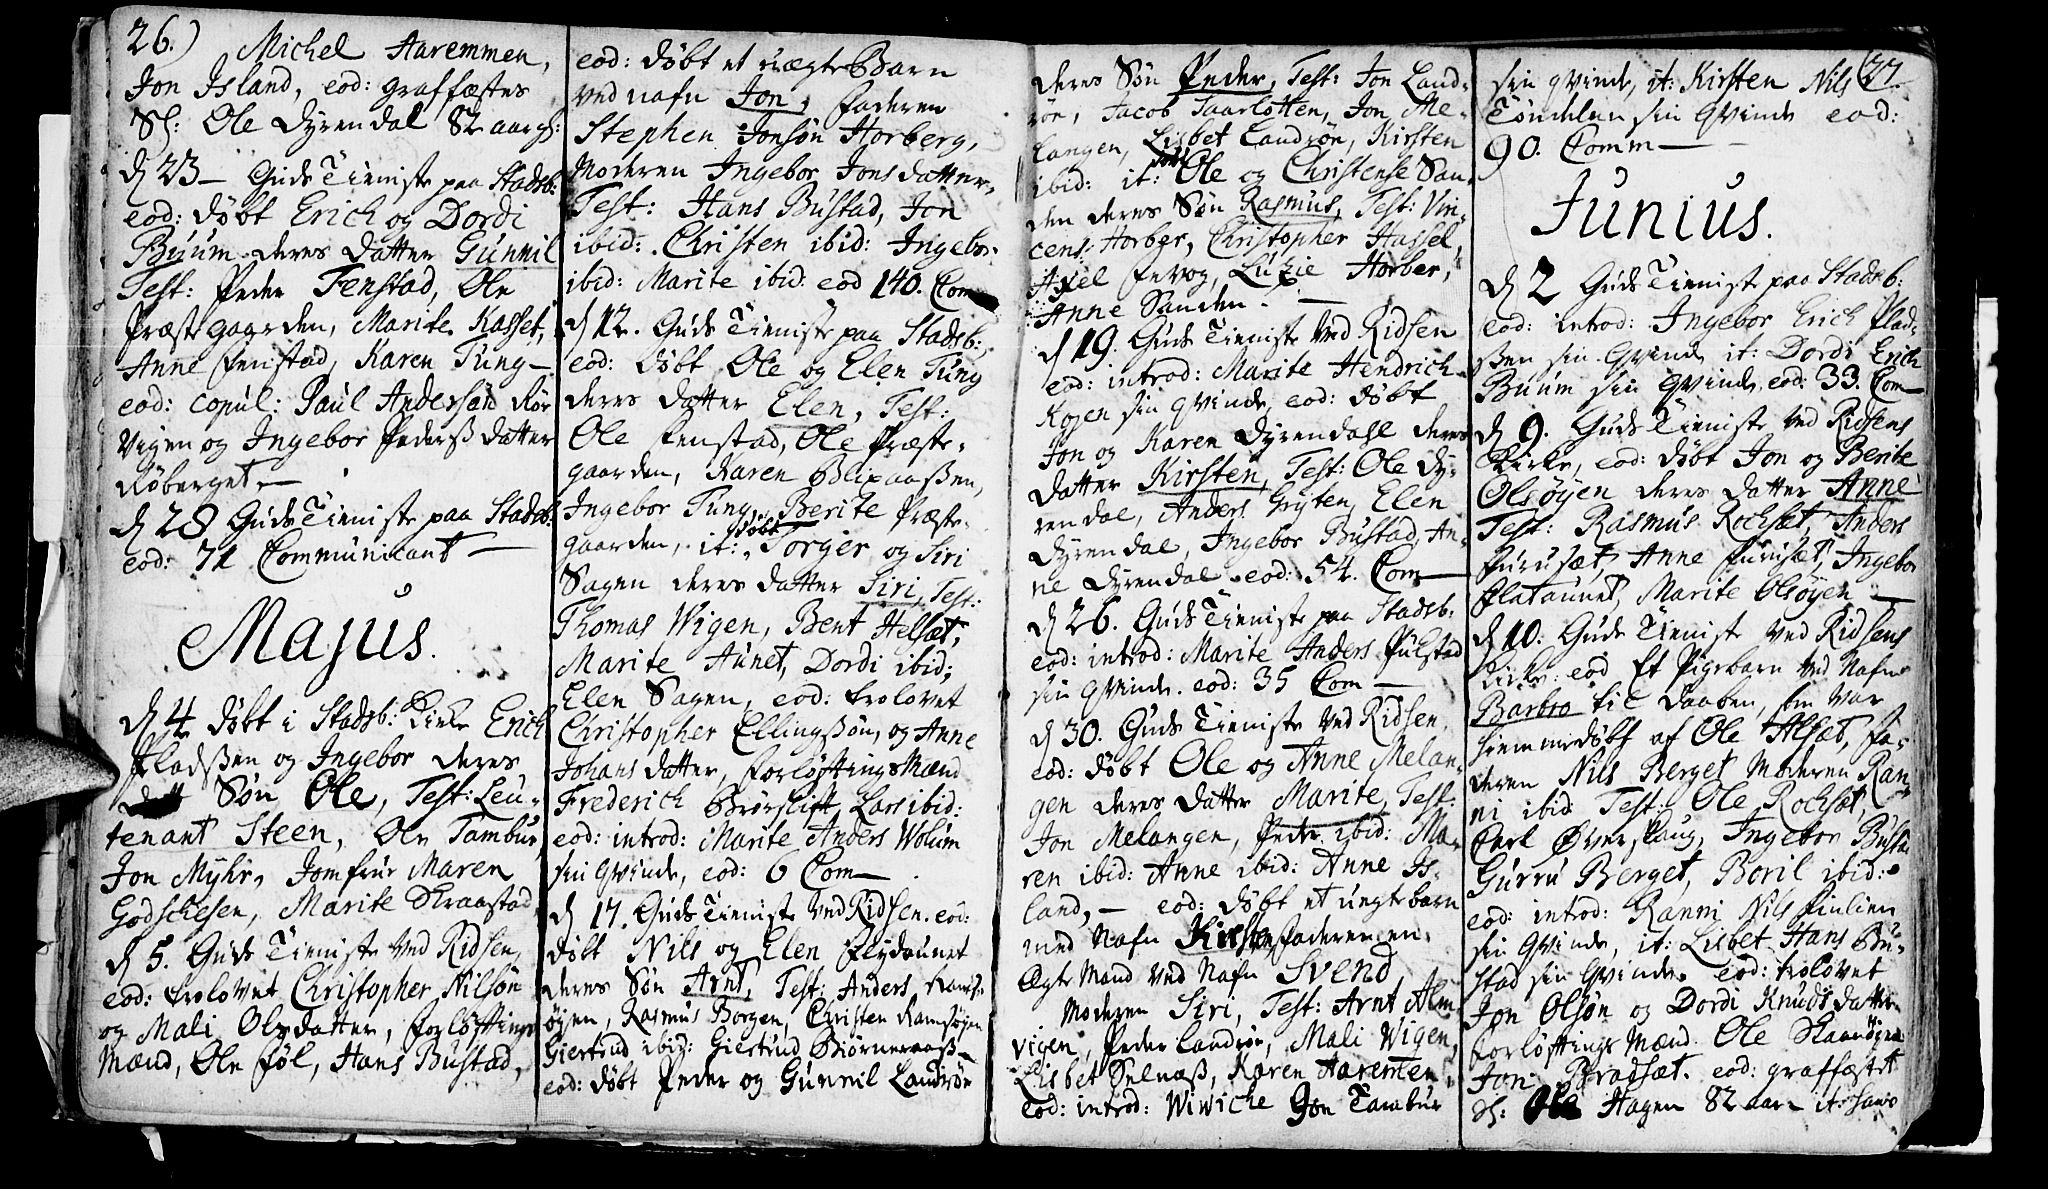 26.)
Michel Aaremmen,
Jon Island, eod: graffæstes
Sl: Ole Dyrendal 82 aar gl:
D 23 — Guds Tieniste paa Stadsb:
eod: døbt Erich og Dordi
Buum deres datter Gunnil
Test: Peder Fenstad, Ole
Præstegaarden, Marite Kasset,
Anne Fenstad, Karen Tung —
eod: copul: Paul Andersøn Rør
Vigen og Ingebor Pederss datter
Røberget —
D 28 Guds Tieniste paa Stadsb:
eod: 74 Communicant —
Majus.
D 4 døbt i Stadsb: Kirke Erich
Pladssen og Ingebor deres
Søn Ole, Test: Leu-
tenant Steen, Ole Tambur,
Jon Myhr, Jomfru Maren
Godschesen, Marite Skraastad,
D 5. Guds Tieniste ved Ridsen,
eod: trolovet Christopher Nilsøn
og Mali Olsdatter, forløftings
Mænd, Ole Føl, Hans Bustad,
eod: døbt et uægte Barn
ved nafn Jon, Faderen
Stephen Jonsøn Horberg,
Moderen Ingebor Jonsdatter,
Test: Hans Bustad, Jon
ibid: Christen ibid: Ingebor
ibid: Marite ibid. eod 140. Com
D 12. Guds Tieniste paa Stadsb:
eod: døbt Ole og Elen Tung
deres datter Elen, Test:
Ole Fenstad, Ole Præste-
gaarden, Karen Blixaassen,
Ingebor Tung, Berite Præste-
gaarden, it: døbt Torger og Siri
Sagen deres datter Siri, Test:
Thomas Wigen, Bent Helsæt,
Marite Aunet, Dordi ibid:
Elen Sagen, eod: trolovet
Christopher Ellingssøn, og Anne
Johans datter, forløftings Mænd
Frederich Børslift, Lars ibid:
eod: introd: Marite Anders Wolum
sin qvinde, eod: 6 Com —
D 17. Guds Tieniste ved Ridsen. eod:
døbt Nils og Elen Flydaunet
deres Søn Arnt, Test: Anders Rams-
øyen, Rasmus Borgen, Christen Ramsøyen
Giertrud ibid: Giertrud Biørneraass —
eod: døbt Peder og Gunnil Landrøn
deres Søn Peder, Test: Jon Land-
rön, Jacob Saarlotten, Jon Me-
langen, Lisbet Landrøn, Kirsten
ibid: it: døbt Ole og Christense San-
den deres Søn Rasmus, Test: Vin-
cens: Horber, Christopher Hassel,
Axel Ferog, Luzie Horber,
Anne Sanden. —
D 19. Guds Tieniste ved Ridsen
eod: introd: Marite Hendrich
Kojen sin qvinde, eod: døbt
Jon og Karen Dyrendahl deres
datter Kirsten, Test: Ole Dy-
rendal, Anders Gryten, Elen
Dyrendal, Ingebor Bustad, An-
ne Dyrendal. eod: 54. Com —
D 26. Guds Tieniste paa Stadsb.
eod: introd: Marite Anders Fulstad
sin qvinde. eod: 35 Com —
D 30. Guds Tieniste ved Ridsen,
eod: døbt Ole og Anne Melan-
gen deres datter Marite, Test:
Jon Melangen, Peder ibid: Ma-
ren ibid: Anne ibid: Anne Is-
land, — eod: døbt et uægte barn
med Nafn Kirsten, Faderen en
Ægte Mand ved Nafn Svend,
Moderen Siri, Test: Arnt Alm
vigen, Peder Landrön, Mali Wigen,
Lisbet Selnæss, Karen Aaremen,
eod: introd: Wiwiche Jon Tambur
27.
sin qvinde, it: Kirsten Nils
Tøndelen sin qvinde eod:
90. Comm —
Junius.
D 2 Guds Tieniste paa Stadsb:
eod: introd: Ingebor Erich Plad-
ssen sin qvinde, it: Dordi Erich
Buum sin qvinde, eod: 33. Com —
D 9. Guds Tieniste ved Ridsens
Kirke, eod: døbt Jon og Berite
Olsøyen deres datter Anne
Test: Rasmus Rochsæt, Anders
Furusæt, Anne Furusæt, Ingebor
Flataunet, Marite Olsøyen —
D 10. Guds Tieniste ved Ridsens
Kirke: eod Et Pigebarn ved Nafn
Barbro til daaben, som var
hiemmedøbt af Ole Alsæt, Fa-
deren Nils Berget Moderen Ran
ni ibid Test: Ole Rochsæt,
Carl Øverskaug, Ingebor Busta
Gurru Berget, Boril ibid:
eod: introd: Ranni Nils Finlien
sin qvinde, it: Lisbet Hans Bu-
stad sin qvinde. eod: trolovet
Jon Olsøn og Dordi Knudsdatter
forløftings Mænd. Ole Skaanøyen
Jon Bradsæt. eod: graffæstet
Sl: Ole Hagen 82 aar it: